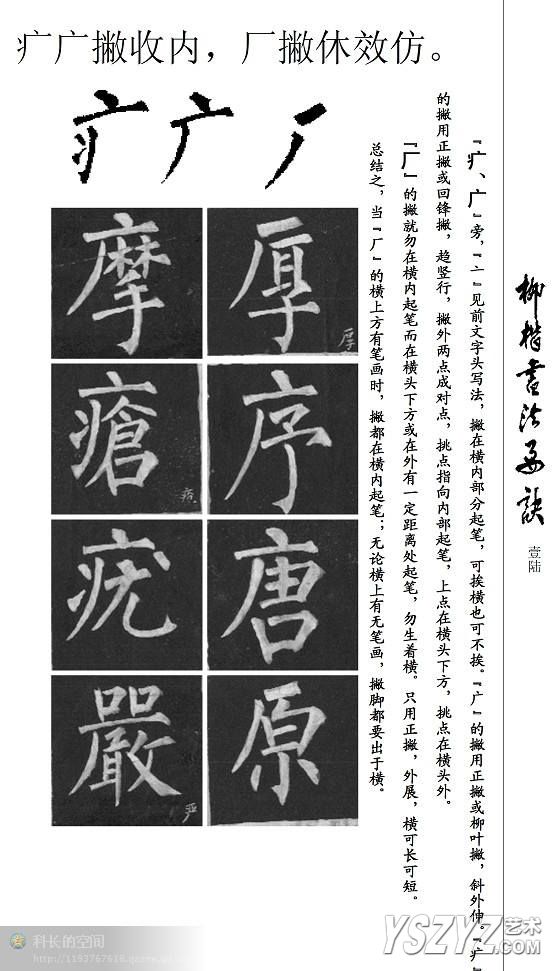 疒广撇收内，厂撇休效仿。
疒广厂
『疒、广』旁，『亠』见前文字头写法，撇在横内部分起笔，可挨横也可不挨。『广』的撇用正撇或柳叶撇，斜外伸。『疒』
的撇用正撇或回锋撇，趋竖行，撇外两点成对点，挑点指向内部起笔，上点在横头下方，挑点在横头外。
『厂』的撇就勿在横内起笔而在横头下方或在外有一定距离处起笔，勿生着横。只用正撇，外展，横可长可短。
总结之，当『厂』的横上方有笔画时，撇都在横内起笔；无论横上有无笔画，撇脚都要出于横。
柳楷书法要诀
壹陆
摩 厚
厚
瘡 序
疮
疣 唐
嚴 原
严
科长的空间
http://1193767618.qzone.qq.com
YSZYZ艺术
.com